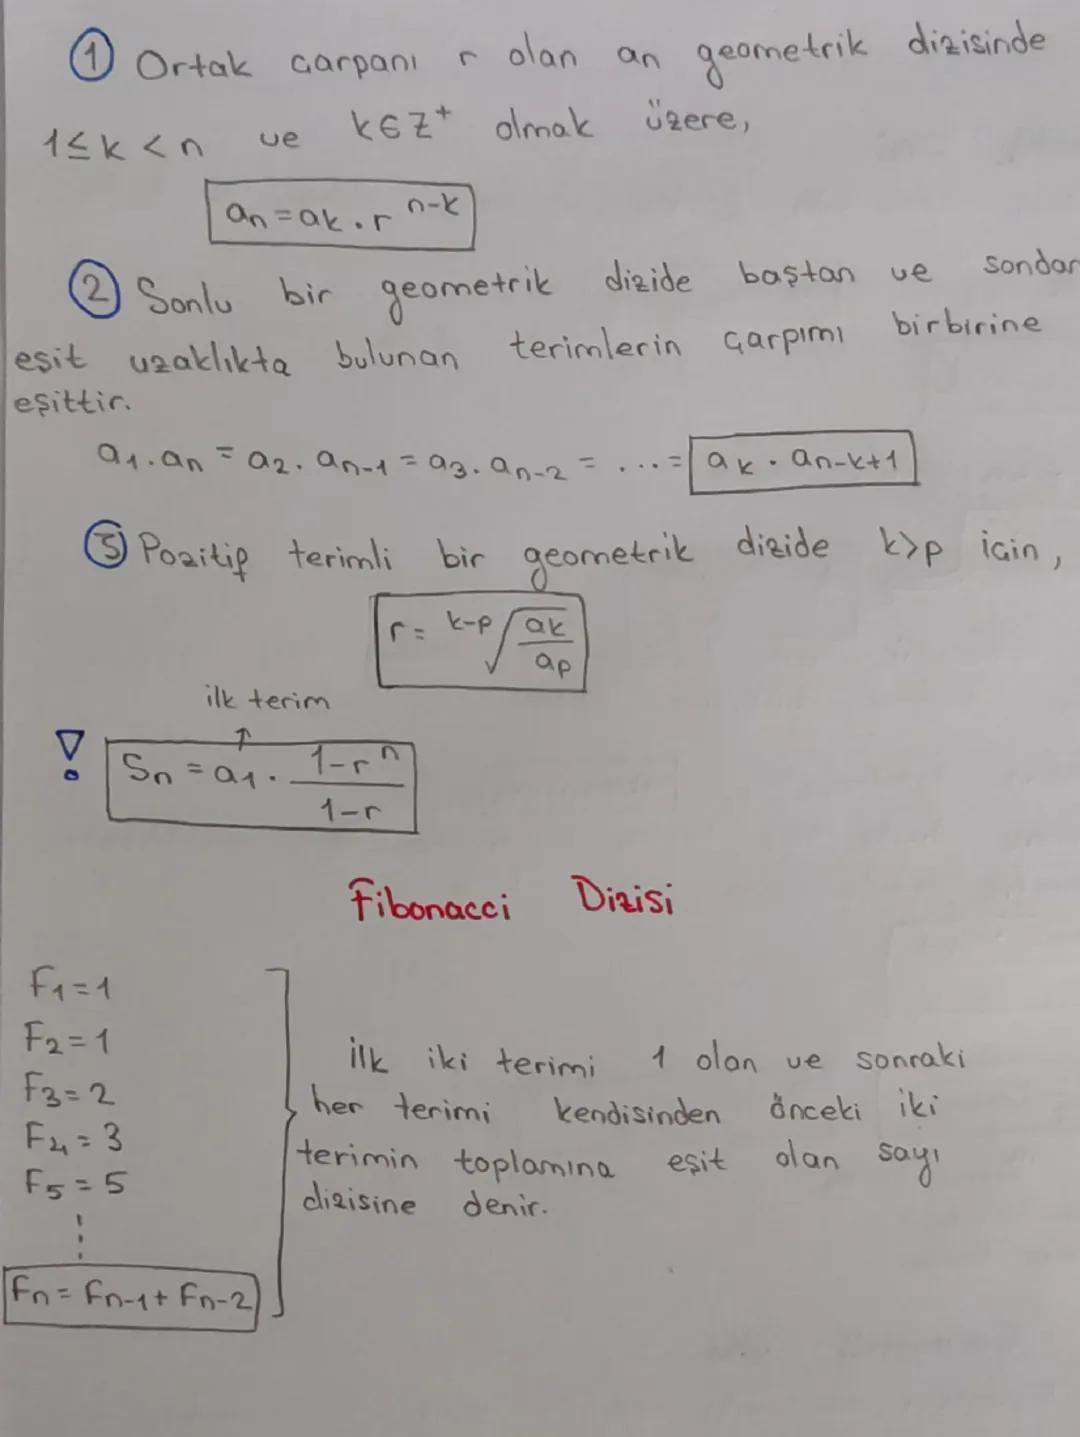 ① Ortak çarpanı r olan an geometrik dizisinde
1≤k<n ve k∈Z⁺ olmak üzere,
an = ak . r^(n-k)
② Sonlu bir geometrik dizide baştan ve sondan
eşit uzaklıkta bulunan terimlerin çarpımı birbirine
eşittir.
a1.an = a2.an-1 = a3.an-2 = ... = ak . an-k+1
③ Pozitif terimli bir geometrik dizide k>p için,
r = ^(k-p)√(ak/ap)
ilk terim
↑
! Sn = a1 . (1-r^n)/(1-r)
Fibonacci Dizisi
F1=1
F2=1
F3=2
F4=3
F5=5
Fn = Fn-1 + Fn-2
İlk iki terimi 1 olan ve sonraki
her terimi kendisinden önceki iki
terimin toplamına eşit olan sayı
dizisine denir.